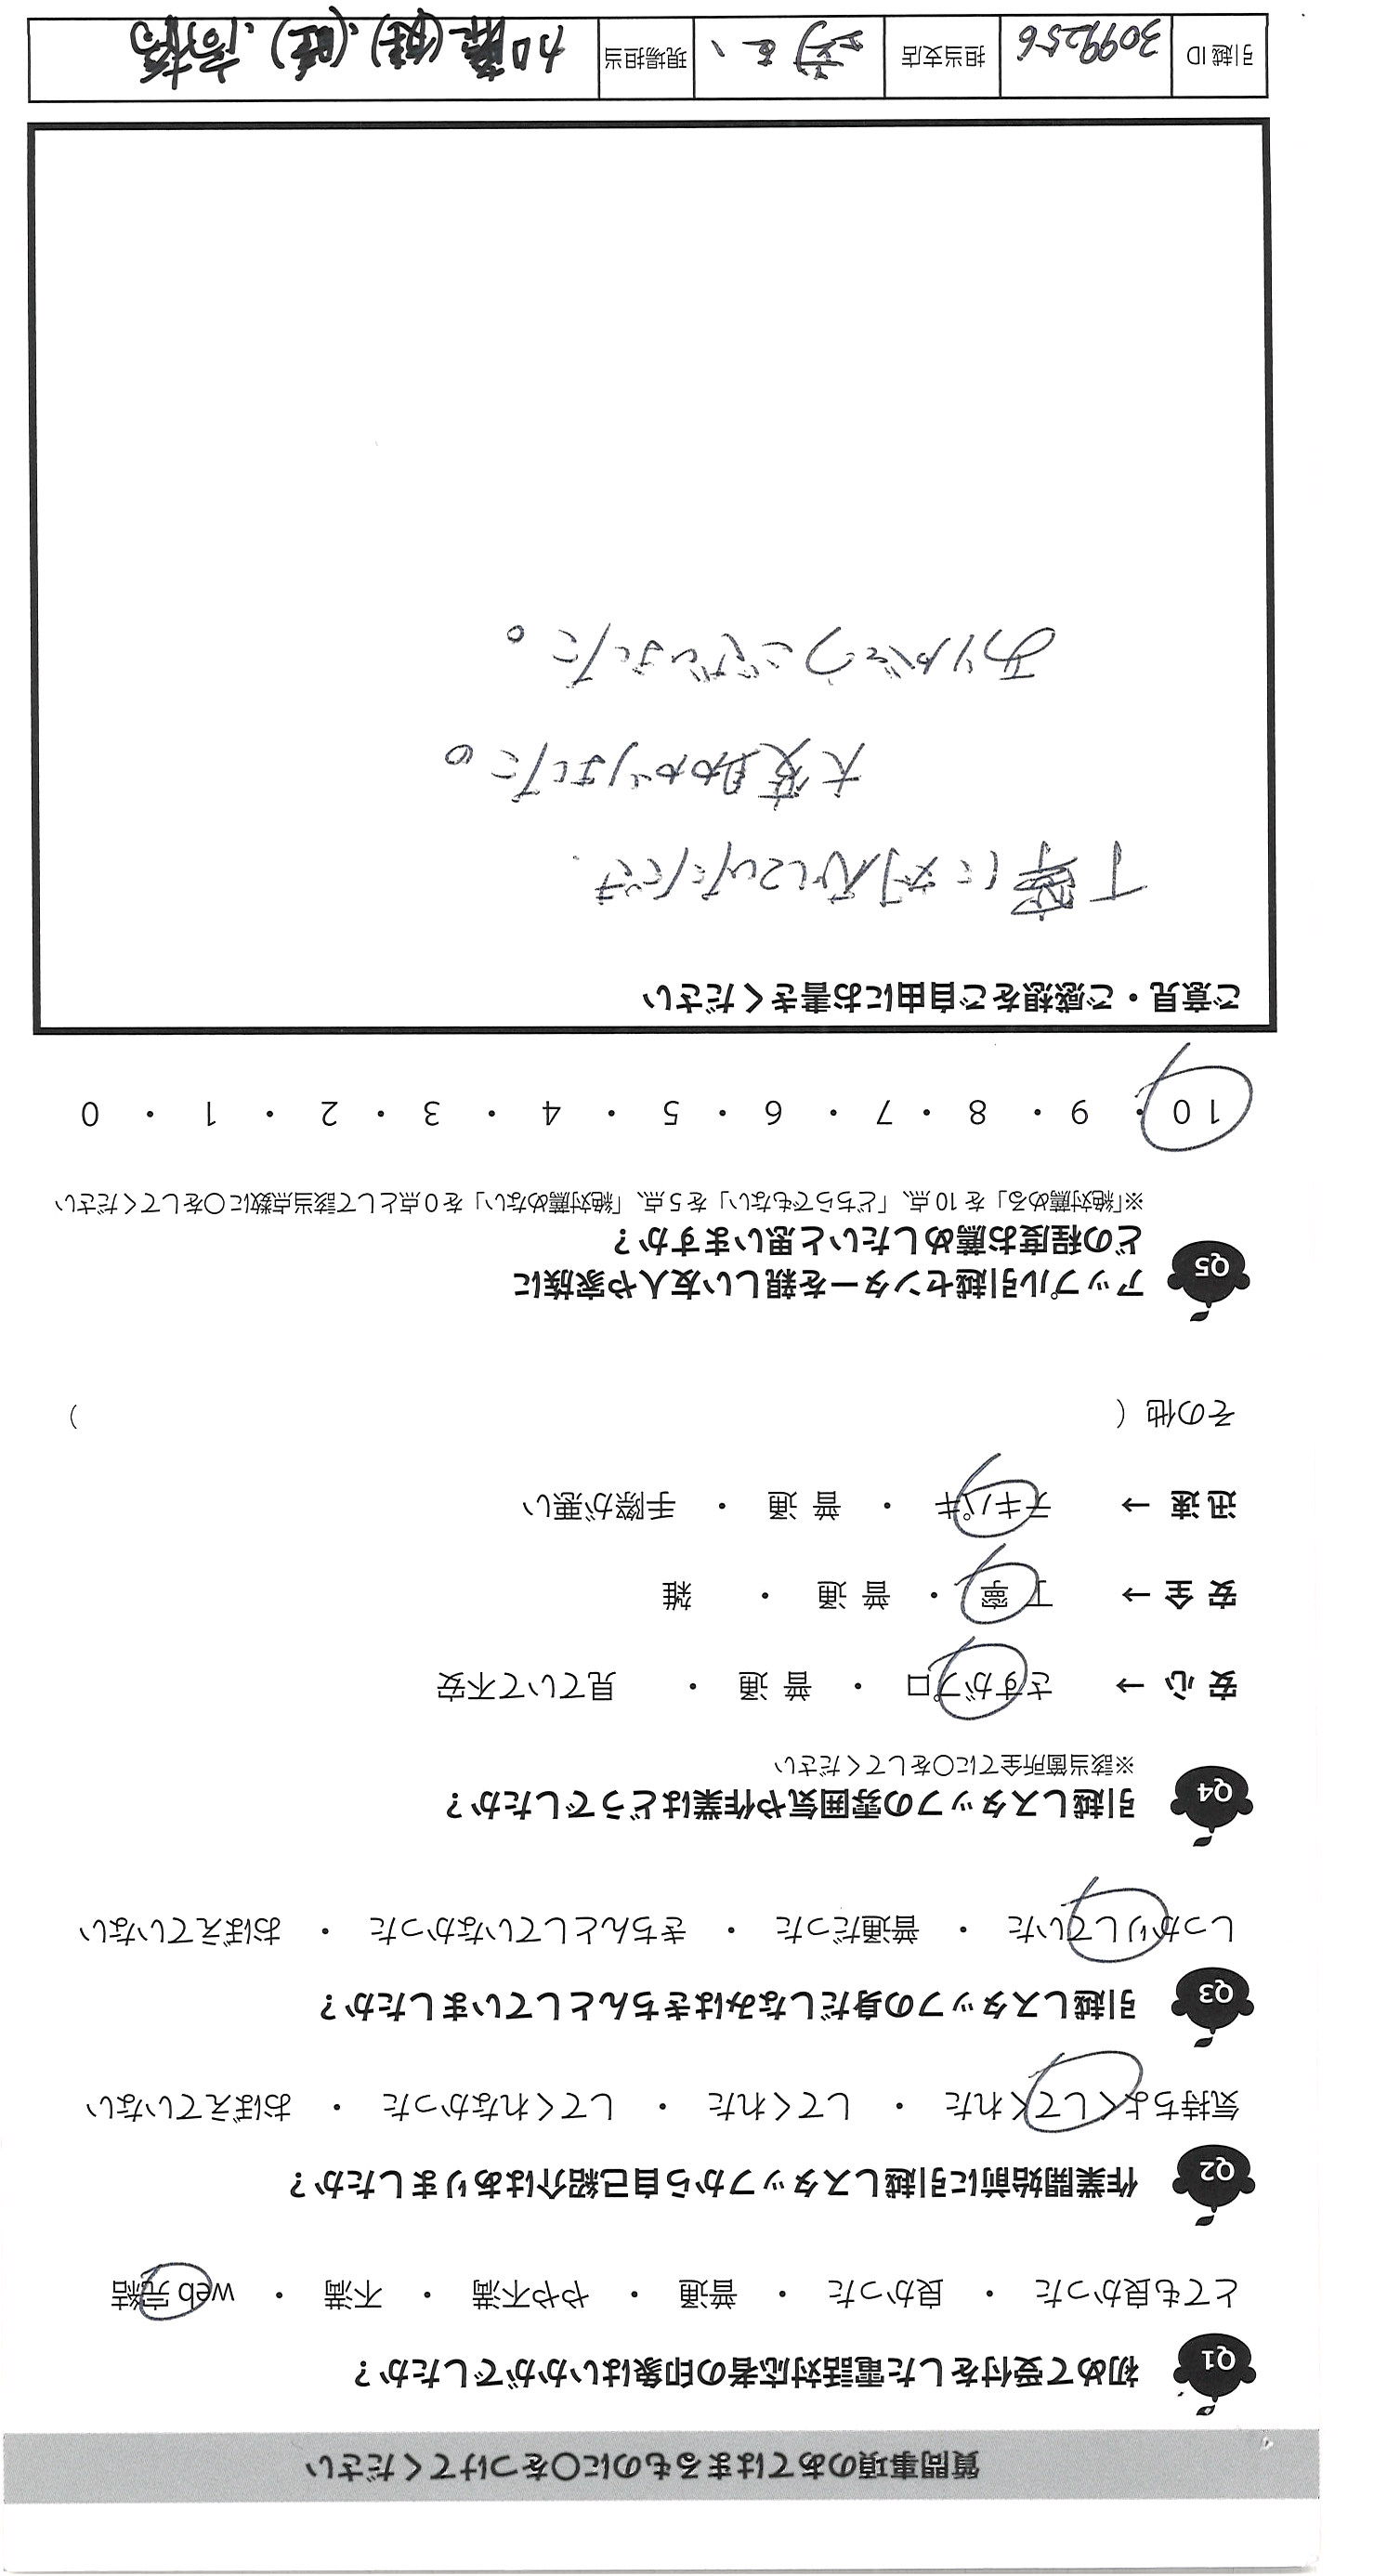 質問事項のあてはまるものに○をつけてください
Q1 初めて受付をした電話対応者の印象はいかがでしたか？
とても良かった ・ 良かった ・ 普通 ・ やや不満 ・ 不満 ・ web 完結
Q2 作業開始前に引越しスタッフから自己紹介はありましたか？
気持ちよくしてくれた ・ してくれた ・ してくれなかった ・ おぼえていない
Q3 引越しスタッフの身だしなみはきちんとしていましたか？
しっかりしていた ・ 普通だった ・ きちんとしていなかった ・ おぼえていない
Q4 引越しスタッフの雰囲気や作業はどうでしたか？
※該当箇所全てに○をしてください
安 心 → さすがプロ ・ 普 通 ・ 見ていて不安
安 全 → 丁 寧 ・ 普 通 ・ 雑
迅 速 → テキパキ ・ 普 通 ・ 手際が悪い
その他（ ）
Q5 アップル引越センターを親しい友人や家族に
どの程度お薦めしたいと思いますか？
※「絶対薦める」を 10 点、「どちらでもない」を 5 点、「絶対薦めない」を 0 点として該当点数に○をしてください
10 ・ 9 ・ 8 ・ 7 ・ 6 ・ 5 ・ 4 ・ 3 ・ 2 ・ 1 ・ 0
ご意見・ご感想をご自由にお書きください
丁寧に対応していただき、
大変助かりました。
ありがとうございました。
引越 ID 3099256 担当支店 現場担当 加藤